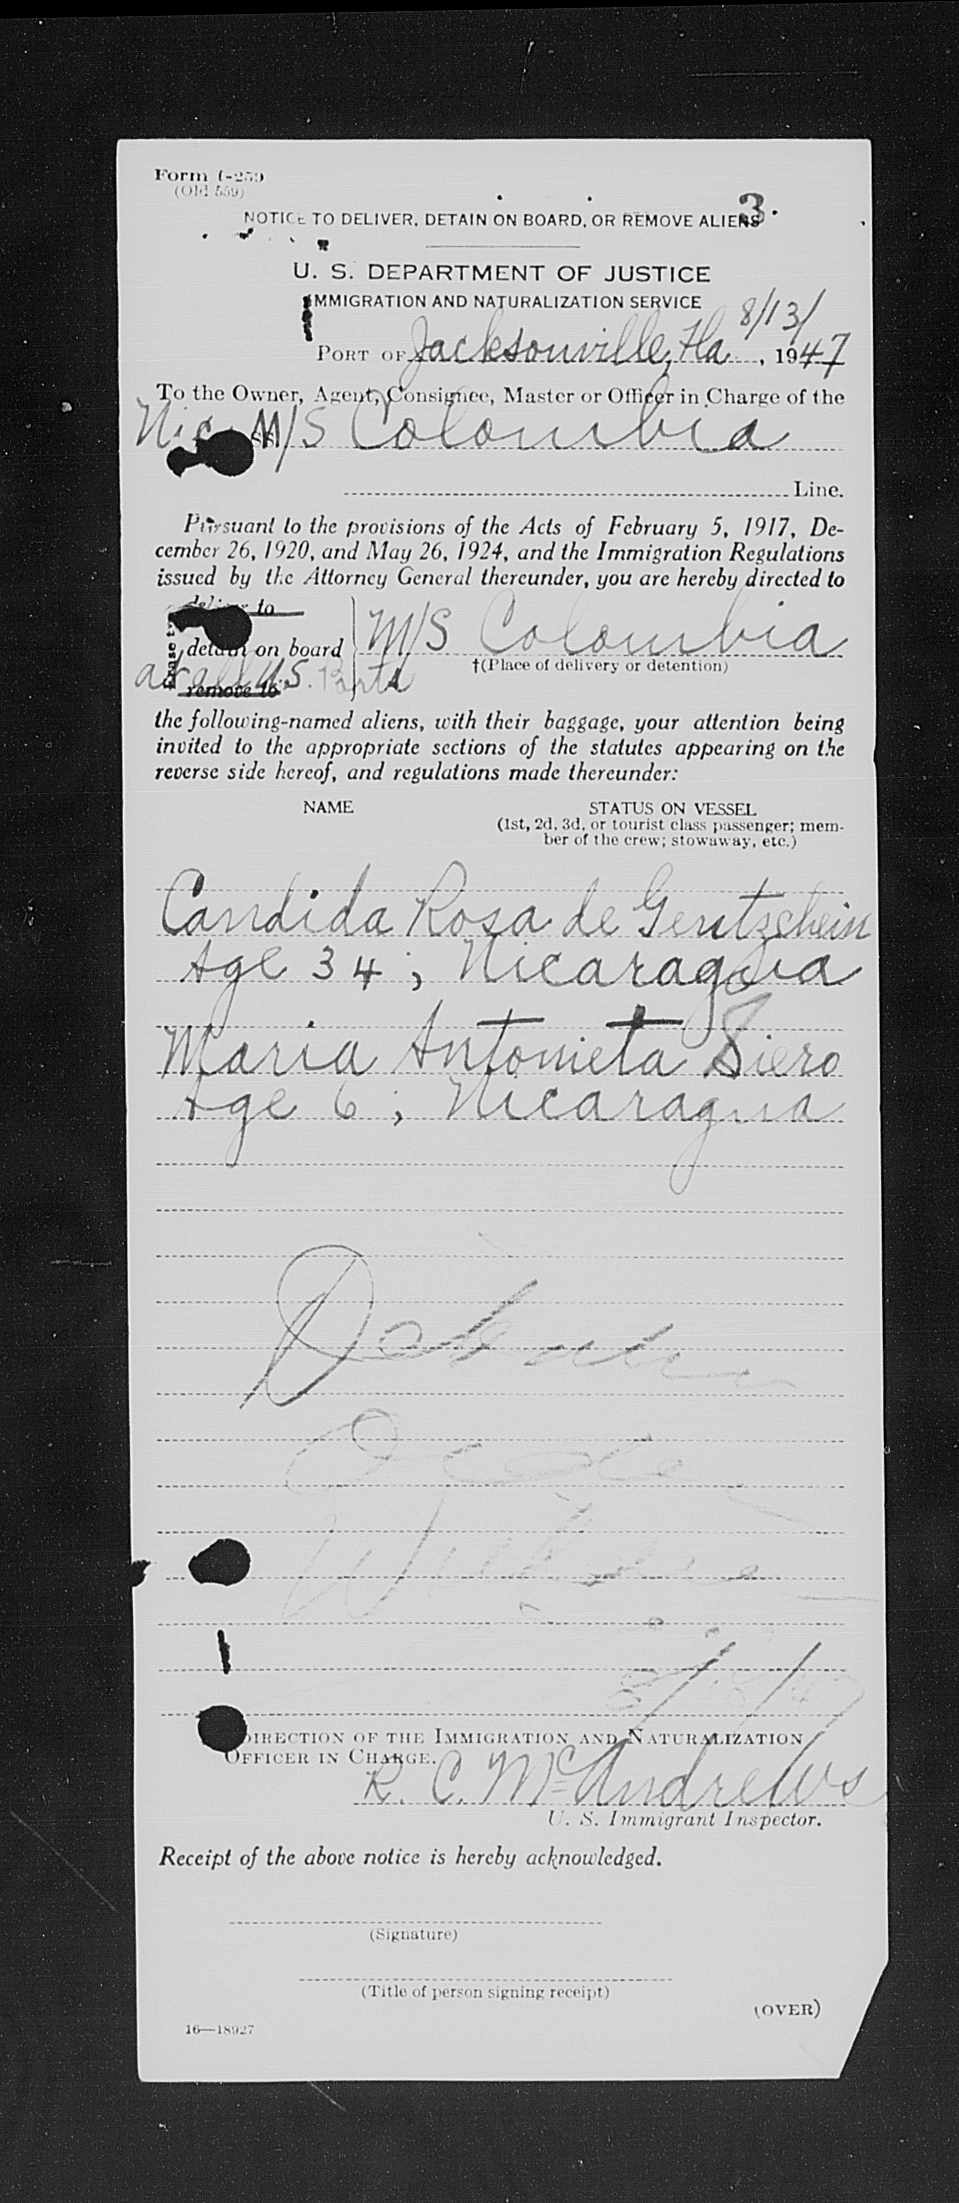 Form I-259
(Old 559)
3
NOTICE TO DELIVER, DETAIN ON BOARD, OR REMOVE ALIENS
U. S. DEPARTMENT OF JUSTICE
IMMIGRATION AND NATURALIZATION SERVICE
8/13/
PORT OF Jacksonville, Fla., 1947
To the Owner, Agent, Consignee, Master or Officer in Charge of the
Nic. M/S Colombia
Line.
Pursuant to the provisions of the Acts of February 5, 1917, De-
cember 26, 1920, and May 26, 1924, and the Immigration Regulations
issued by the Attorney General thereunder, you are hereby directed to
deliver to
detain on board M/S Colombia
†(Place of delivery or detention)
at all U.S. Ports
remove to
the following-named aliens, with their baggage, your attention being
invited to the appropriate sections of the statutes appearing on the
reverse side hereof, and regulations made thereunder:
NAME STATUS ON VESSEL
(1st, 2d, 3d, or tourist class passenger; mem-
ber of the crew; stowaway, etc.)
Candida Rosa de Gentzchein
Age 34; Nicaragua
Maria Antonieta Siero
Age 6; Nicaragua
Detention
Order
DIRECTION OF THE IMMIGRATION AND NATURALIZATION
OFFICER IN CHARGE.
R. C. McAndrews
U. S. Immigrant Inspector.
Receipt of the above notice is hereby acknowledged.
(Signature)
(Title of person signing receipt)
(OVER)
16—18927